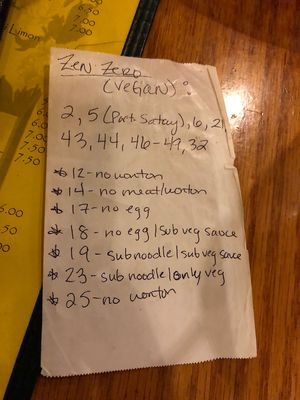 Lymon
6.50
7.00
6.50
7.00
7.00
7.50
6.00
.50
50
ZEN ZERO
(VEGAN):
2, 5 (Port Satay), 6, 21
43, 44, 46-49, 32
* 12 - no wonton
* 14 - no meat/wonton
* 17 - no egg
* 18 - no egg/sub veg sauce
* 19 - sub noodle/sub veg sauce
* 23 - sub noodle/only veg
* 25 - no wonton